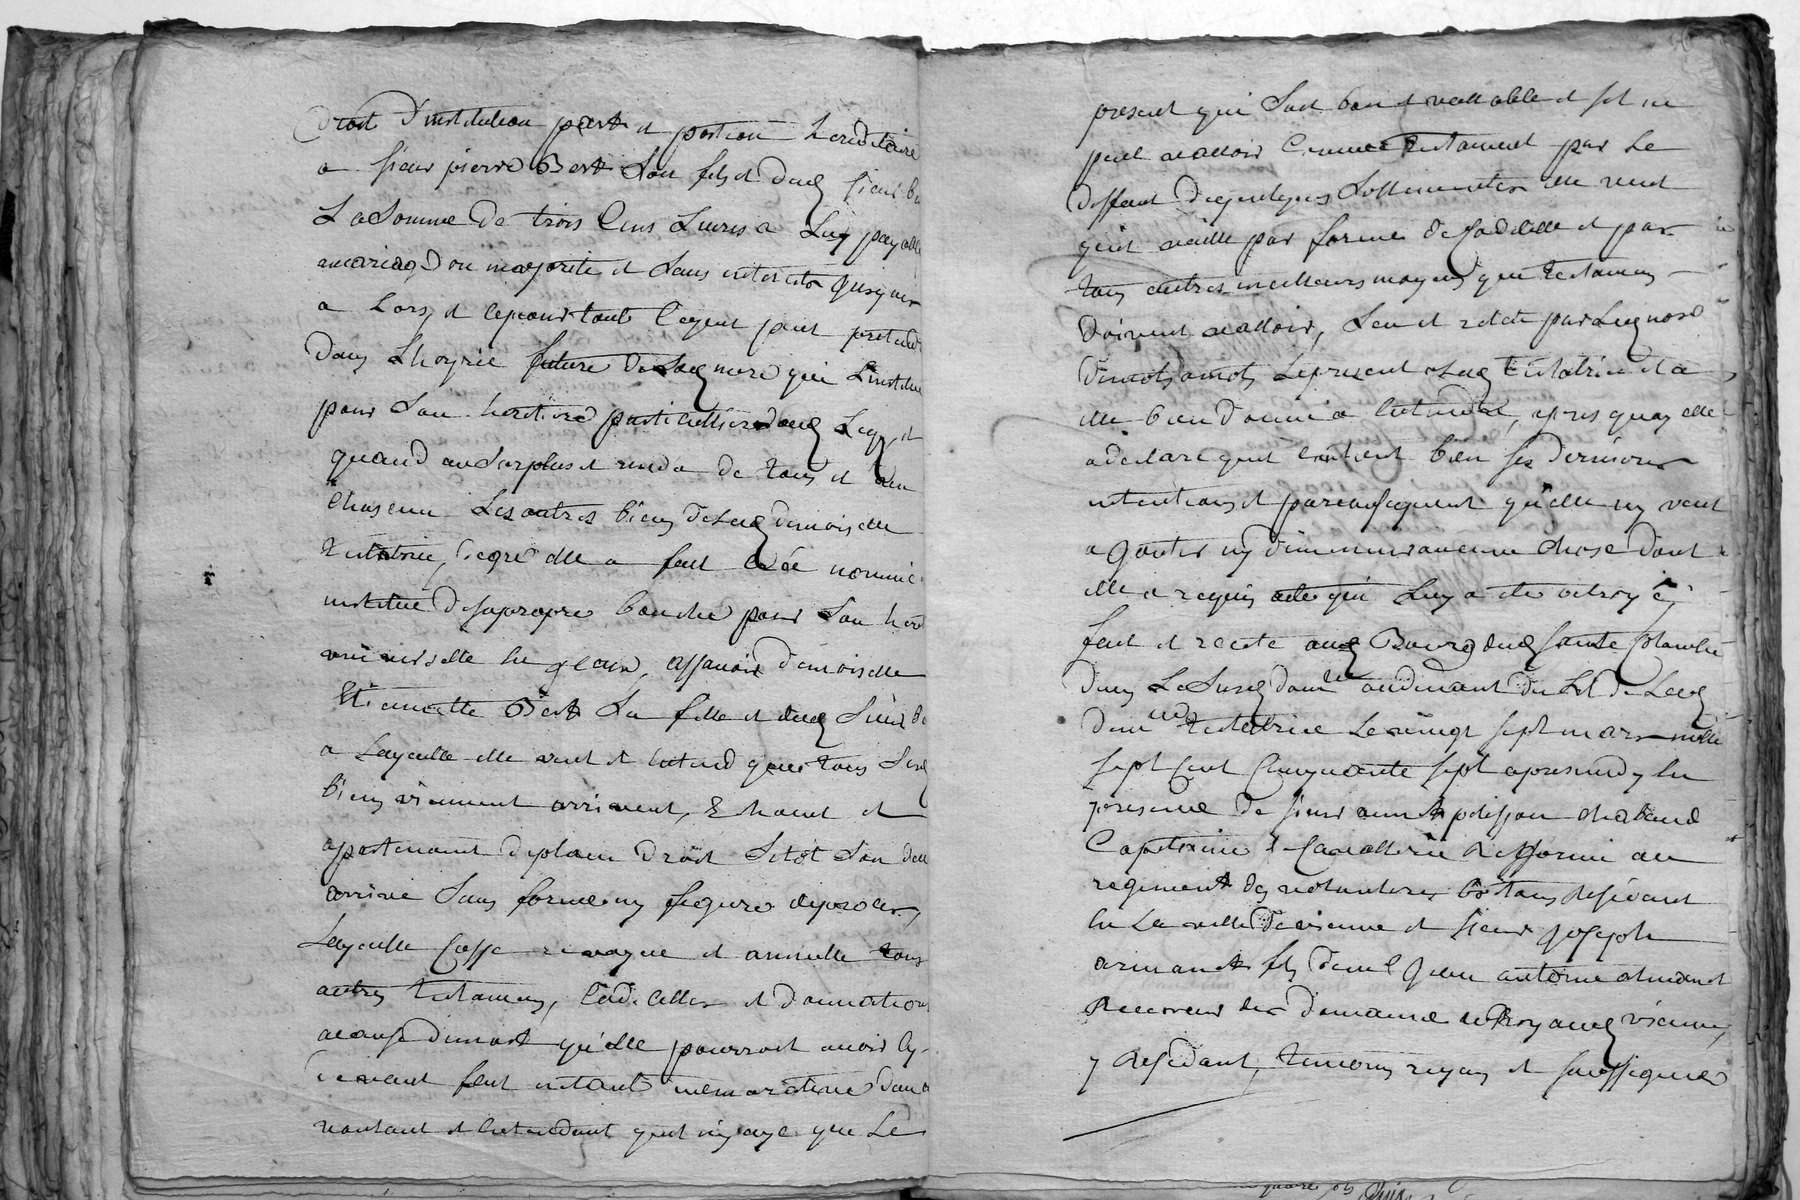 droit d'institution part et portion hereditaire
a sieur pierre Bert son fils et dud sieur
La Somme de trois Cens Livres a Luy payable
mariage ou majorité et sans interets jusques
a Lors, et ce pour tout ce quil peut pretendre
dans Lhoyrie future de sad mere qui Linstitue
pour son heritier particullier aud Leg, et
quand au surplus et reste de tous et un
Chascun Les autres biens de lad demoiselle
testatrice, de gré elle a fait créé nommé
institué de sa propre bouche pour son herit
universelle
Etiennette Bert sa fille et dud Sieur
a Laquelle elle veut et entend que tous sesd
biens viennent arrivent, et
apartienent de plain Droit sitot son deces
arrivé sans forme ny figure de proces,
Laquelle Casse revoque et annulle tous
autres testamens, Codicilles et donnations
a cause de mort qu'elle pourroit avoir Cy
devant fait
voulant et entendant quil ny aye que Le
present qui soit bon et vallable et sil ne
peut valloir Comme testament par Le
deffaut de quelques sollemnites elle veut
quil vaille par forme de Codicille et par
tous autres meilleurs moyens que testamens
doivent valloir, Leu et releu par Led nore
de mots a mots Le present a Lad testatrice et a
elle bien donné a entendre, apres quoy elle
a declaré quil contient bien ses dernieres
intentions et par consequent qu'elle ny veut
ajouter ny diminuer aucune chose dont
elle a requis acte qui Luy a eté octroyé
fait et recité aud Bourg dud Sainte Colombe
dans La Susd domlle au devant du Lit de Lad
demlle testatrice Le vingt sept mars mille
sept Cent Cinquante sept apres midy En
presence de sieur annet poisson chabaud
Capitaine de Cavallerie Refformé au
regiment des volontaires residant
En La ville de vienne et sieur joseph
armanet fils d'autre sieur antoine armanet
Receveur des domaines du Roy aud vienne,
y Residant, temoins requis et soussignes